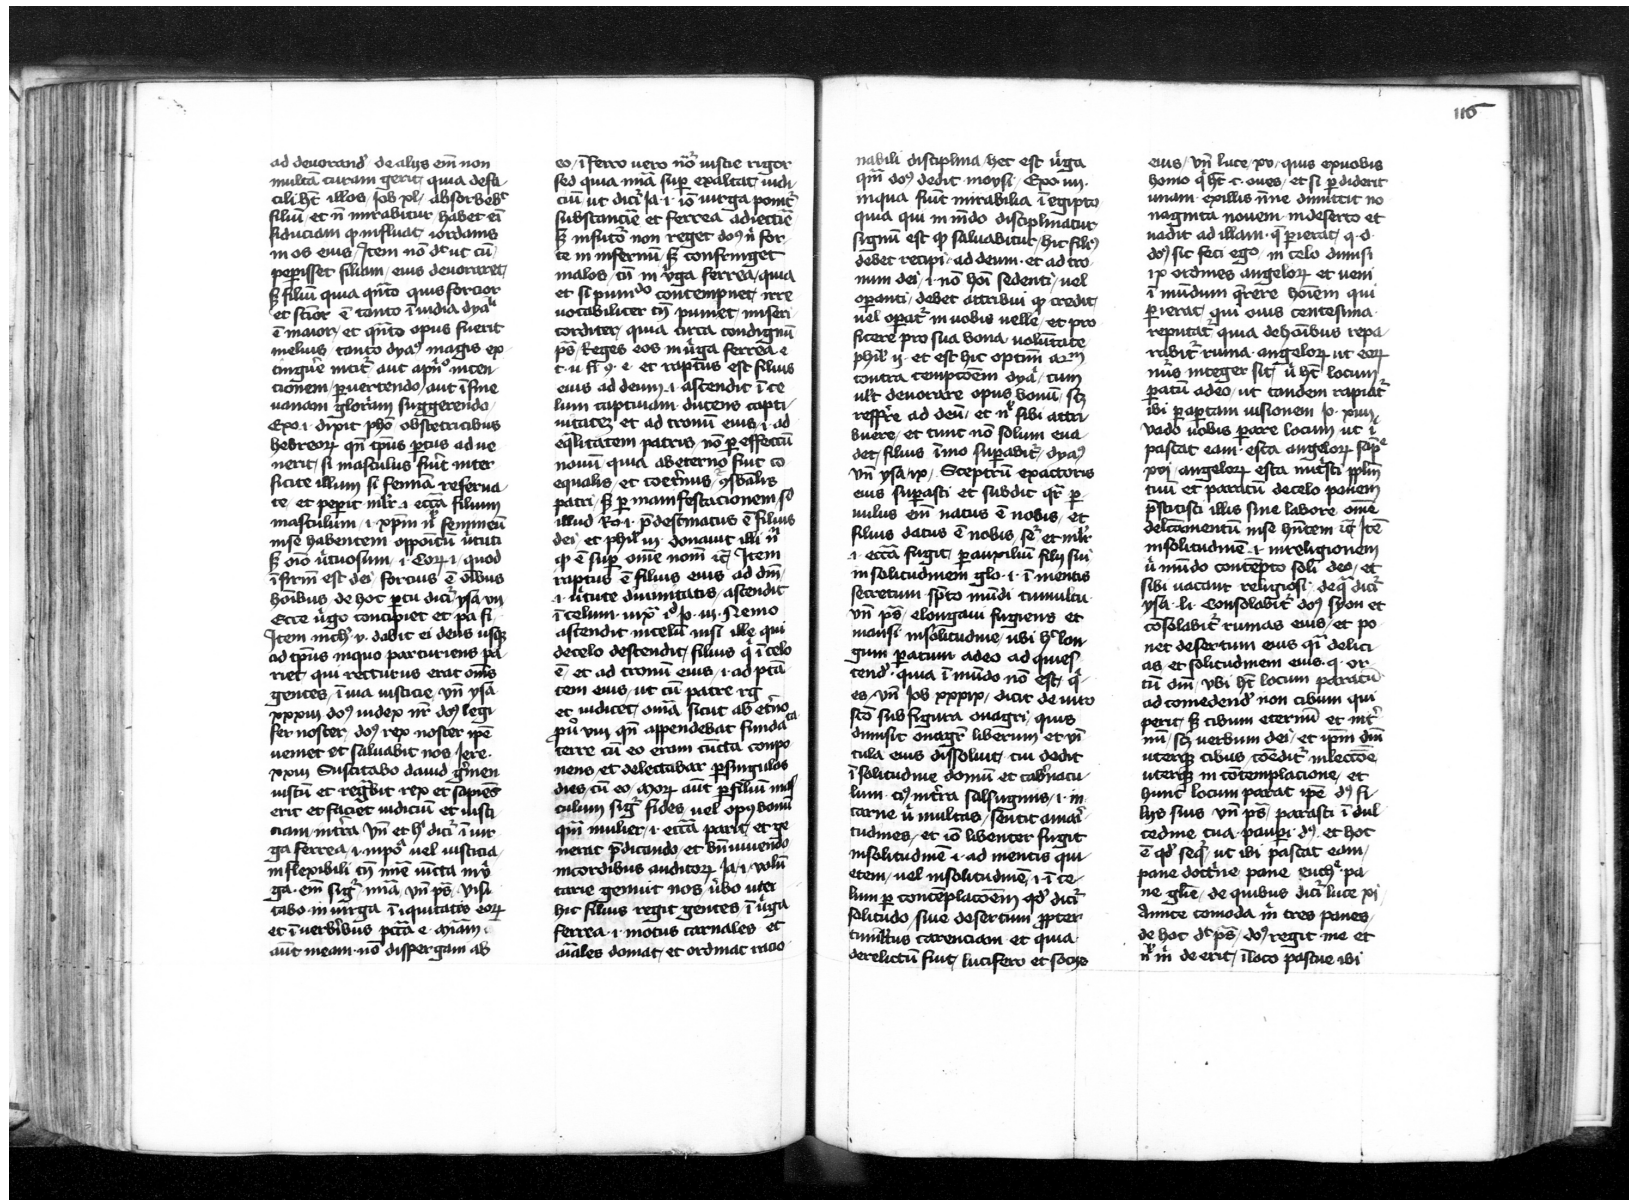 ad deuorand' de alijs em̄ non
multā curam gerit quia deſti
cili hꝫ illos Job xl Absorbebit
filiū et nō mirabitur habet em̄
fiduciam ꝙ influat iordanis
in os eius Item nō dt ut cū
peperisset filium eius deuoraret
sꝫ filiū quia qn̄to quis forcior
et scīor ē tanto ī uidia dyaͥ
ē maior et qn̄to opus fuerit
melius tanto dyaꝰ magis ex
tingūe nitit̄ aut apn̄o inten
cionem puertendo aut ī fine
uanam gloriam suggerendo
Exo i dixit pho obstetricibus
hebreoꝝ qn̄ tp̄us ptus adue
nerit si masculus fūit inter
ficite illum si femīa reserua
te et peperit mlr i eccā filium
masculum i xp̄m nō femineū
in se habentem oppōitū ūtuti
sꝫ oīo ūtuosum i Corꝝ i quod
īfirm̄ est dei forcius ē oībus
hoībus de hoc ptu dicit̄ ysa vii
Ecce ūgo concipiet et pa fi
Item mich' v dabit ei deus usqꝫ
ad tp̄us in quo parturiens pa
riet qui recturus erat oms
gentes ī uia iusticie vn̄ ysa
xxxiii doꝰ iudex nr̄ doꝰ legi
fer noster doꝰ rex noster ip̄e
ueniet et saluabit nos Jere
xxiii Suscitabo dauid ḡmen
iustū et regbit rex et sapiēs
erit et faciet iudiciū et iusti
ciam in tr̄ra vn̄ et h' dicit̄ ī uir
ga ferrea i inpō uel iusticia
inflexibili cū in eē iūcta mīa
ga em̄ sigr̄ mīa vn̄ ps̄ visi
tabo in uirga īiquitates eoꝝ
et ī uerbibus pctā e mīam
aūt meam nō dispergam ab
eo ī ferro uero nō iusticie rigor
sed quia mīa sup exaltat iudi
ciū ut dicit̄ Ja i iō uirga ponit̄
substanciue et ferrea adiectiue
sꝫ in futō non reget doꝰ ī for
te in infernū sꝫ confringet
malos cū in ūga ferrea quia
et si puniēdo contempnet irre
uocabiliter tn̄ puniet miseri
corditer quia citra condignū
ps̄ Reges eos in ūga ferrea e
t u fi 9 e et raptus est filius
eius ad deum i ascendit ī ce
lum captiuam ducens capti
uitatē et ad tronū eius i ad
eqͣlitatem patris nō p effectū
nouū quia ab eterno fuit co
equalis et coet̄nus 9sbālis
patri sꝫ p manifestacionem so
illud Ro i p̄destinatus ē filius
dei et phil iii donauit illi n̄
ꝙ ē sup oīne nom̄ iꝫ Item
raptus ē filius eius ad dm̄
i ūtute diuinitatis ascendit
ī celum iuxͣ iº Jo iii Nemo
ascendit in celū nisi ille qui
de celo descendit filius qͥ ī celo
ē et ad tronū eius i ad ptā
tem eius ut cū patre rḡ
et iudicet omīa sicut ab et̄no
pu' viii qn̄ appendebat fundata
terre cū eo eram cūcta conpo
nens et delectabar p singulos
dies cū eo Moꝝ aūt p filiū mas
culum sigr̄ fides uel opꝰ bonū
qm̄ mulier i eccā parit et ge
nerat p̄dicando et bn̄ uiuendo
in cordibus auditoꝝ Ja i volū
tarie genuit nos ūbo uītꝭ
hic filius regit gentes ī ūga
ferrea i motus carnales et
aīales domat et ordinat racio
116
nabili disciplina hec est ūga
qm̄ doꝰ dedit moysi Exo iiii
in qua fiūt mirabilia ī egipto
quia qui in mūdo disciplinatur
signū est ꝙ saluabitur hic filiꝰ
debet recipi ad deum et ad tro
num dei i nō hoī sedenti uel
opanti debet attribui ꝙ credit
uel opat̄ in uobis uelle et pro
ficere pro sua bona uoluntate
phil ij et est hic optim arm
contra temptōem dyaͥ cum
ult deuorare opus bonū scꝫ
reffr̄re ad deū et nō sibi attri
buere et tunc nō solum eua
det filius īmo supabit dyaꝰ
vn̄ ysa ix Sceptrū exactoris
eius supasti et subdit qr̄ p
uulus em̄ natus ē nobis et
filius datus ē nobis sē et mlr̄
i eccā fugit p auxiliū filij sui
in solitudinem glo i ī mentis
secretum spto mūdi tumultu
vn̄ ps̄ elongaui fugiens et
mansi in solitudine ubi h' lon
gum patum adeo ad quies
cend' quia ī mūdo nō est qͥ
es vn̄ Job xxxix dicit de uiro
scō sub figura onagri quis
dimisit onagr̄ liberum et vī
cula eius dissoluit cui dedit
ī solitudine domū et tabnacu
lum eiꝰ in tr̄ra salsuginis i in
carne ū multas sentit amari
tudines et iō libenter fugit
in solitudinē i ad mentis qui
etem uel in solitudinē i ī ce
lum p contēplacōem qd' dicit̄
solitudo siue desertum ppter
tumltus carenciam et quia
derelictū fuit lucifero et socijs
eius vn̄ luce xv quis ex uobis
homo qͥ hꝫ c oues et si pdiderit
unam ex illis nne dimittit no
naginta nouem in deserto et
uadit ad illam q̄ pierat q d
doꝰ sic feci ego in celo dimisi
ix ordines angeloꝝ et ueni
ī mūdum q̄rere hoīem qui
pierat qui ouis centesima
reputat̄ quia de hoībus repa
rabit̄ ruina angeloꝝ ut eoꝝ
nūs integer sit ū hꝫ locum
patū adeo ut tandem rapiat̄
ibi p aptam uisionem Jo xiiii
vado uobis parare locum ut ī
pascat eam esca angeloꝝ sap̄e
xvi angeloꝝ esca nut̄sti pplm̄
tuū et paratū de celo panem
p̄stitisti illis sine labore om̄e
delcāmentū in se hn̄tem iꝫ Itē
in solitudinē i in religionem
ū mūdo contēpto soli deo et
sibi uacant religiosi de qͣ dicit̄
ysa li Consolabit̄ doꝰ syon et
cōsolabit̄ ruinas eius et po
net desertum eius qͣi delici
as et solitudinem eius q or
tū dnī vbi hꝫ locum paratū
ad comedend' non cibum qui
perit sꝫ cibum eternū et int̄
nū scꝫ verbum dei et ip̄m dm̄
uterqꝫ cibus cōedit̄ in lectōe
uterqꝫ in contemplacione et
hunc locum parat ip̄e dꝰ fi
lijs suis vn̄ ps̄ parasti ī dul
cedine tua paupi dꝰ et hoc
ē qd' seqͥ ut ibi pascat eam
pane doctrīe pane euchͤ pa
ne glīe de quibus dicit̄ luce xi
Amice comoda m̄ tres panes
de hoc dt ps̄ doꝰ regit me et
nl m̄ deerit ī loco pascue ibi